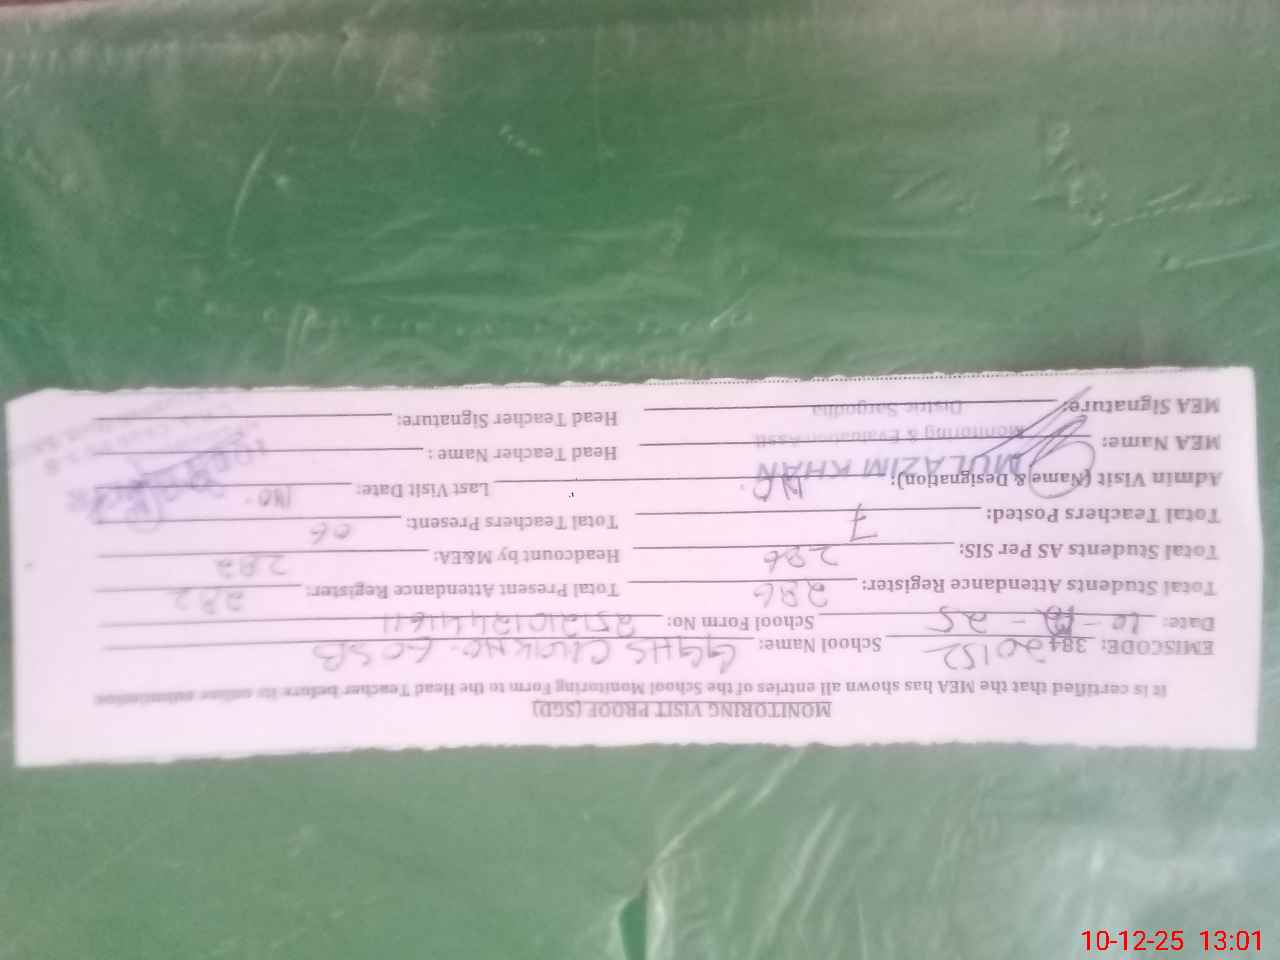 MONITORING VISIT PROOF (SGD)
It is certified that the MEA has shown all entries of the School Monitoring Form to the Head Teacher before its online submission
EMISCODE: 38420152 School Name: GGHS CHAK NO. 60 SB
Date: 10-12-25 School Form No:
Total Students Attendance Register: 286 Total Present Attendance Register: 282
Total Students AS Per SIS: 286 Headcount by M&EA: 282
Total Teachers Posted: 7 Total Teachers Present: 06
Admin Visit (Name & Designation): No. Last Visit Date: No.
MULAZIM KHAN
MEA Name: Head Teacher Name :
Monitoring & Evaluation Asstt
MEA Signature: Head Teacher Signature:
Distric Sargodha
10-12-25 13:01